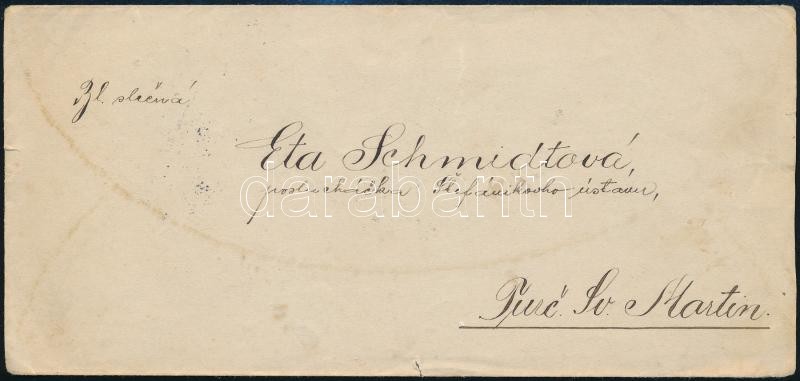 Bl. slečna
Eta Schmidtová,
poslucháčka Štefánikovho ústavu,
Turč. Sv. Martin.
darabanth